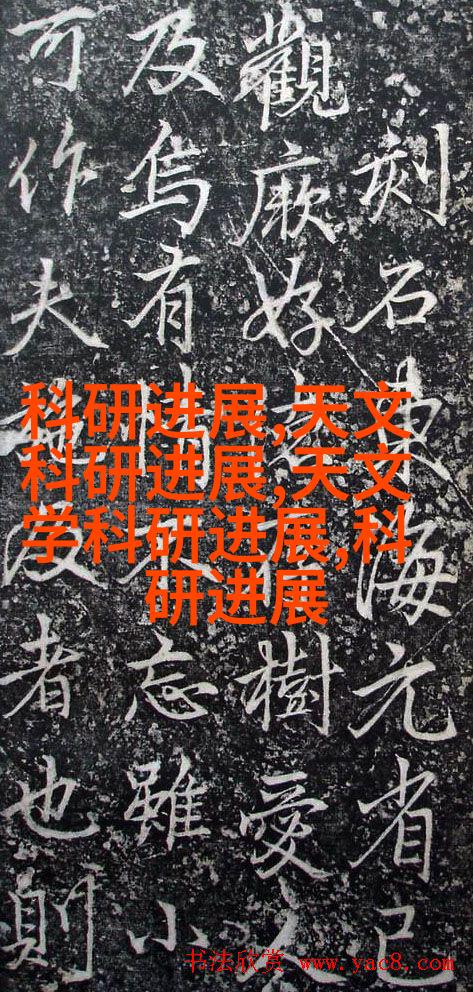 刻石東海元省已
觀厥好於樹愛
及烏有情不忘雖小
可作夫及者也則
科研进展,天文
科研进展,天文
学科研进展,科
研进展
书法欣赏 www.yac8.com